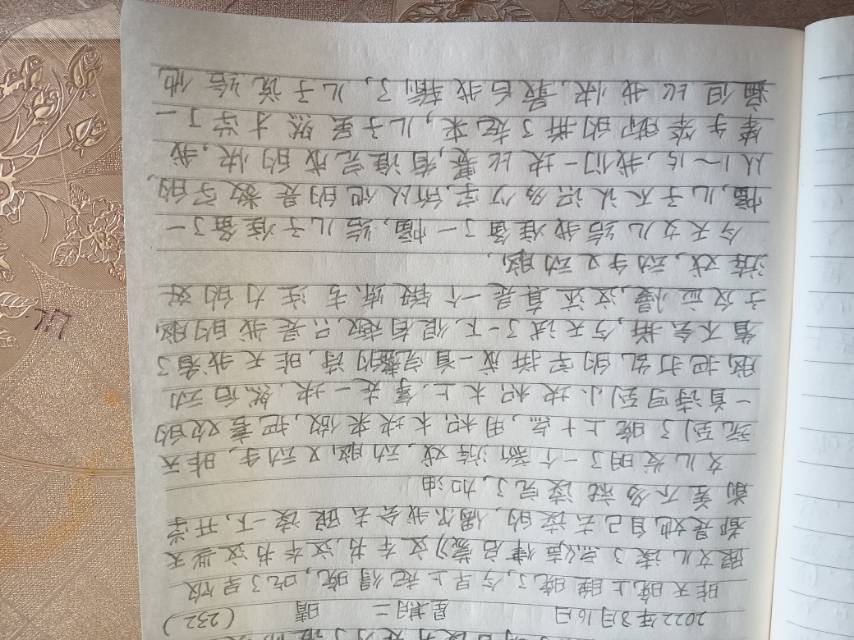 2022年8月16日 星期二 晴 (232)
昨天晚上睡晚了,今早上起得晚,吃了早饭
跟女儿读了《声律启蒙》这本书,这本书这些天
都是她自己去读的,偶尔我会去跟读一下,开学
前差不多就读完了,加油
女儿发明了一个新游戏,动脑又动手,昨天
玩到了晚上十点,用积木块来做,把喜欢的
一首诗写到小块积木上,拿走一块,然后动
脑把打乱的字拼成一首完整的诗,昨天我看了
看不会拼,今天试了一下,很有趣,只是我的脑
子反应慢,这还真是一个锻炼专注力的好
游戏,动手又动脑。
今天女儿给我准备了一幅,给儿子准备了一
幅,儿子不认识多少字,所以他的是数字的,
从1~15,我们一块比赛,看谁完成的快,我
笨手笨脚的拼了起来,儿子虽然才学了一
遍但比我快,最后我输了,儿子说给他